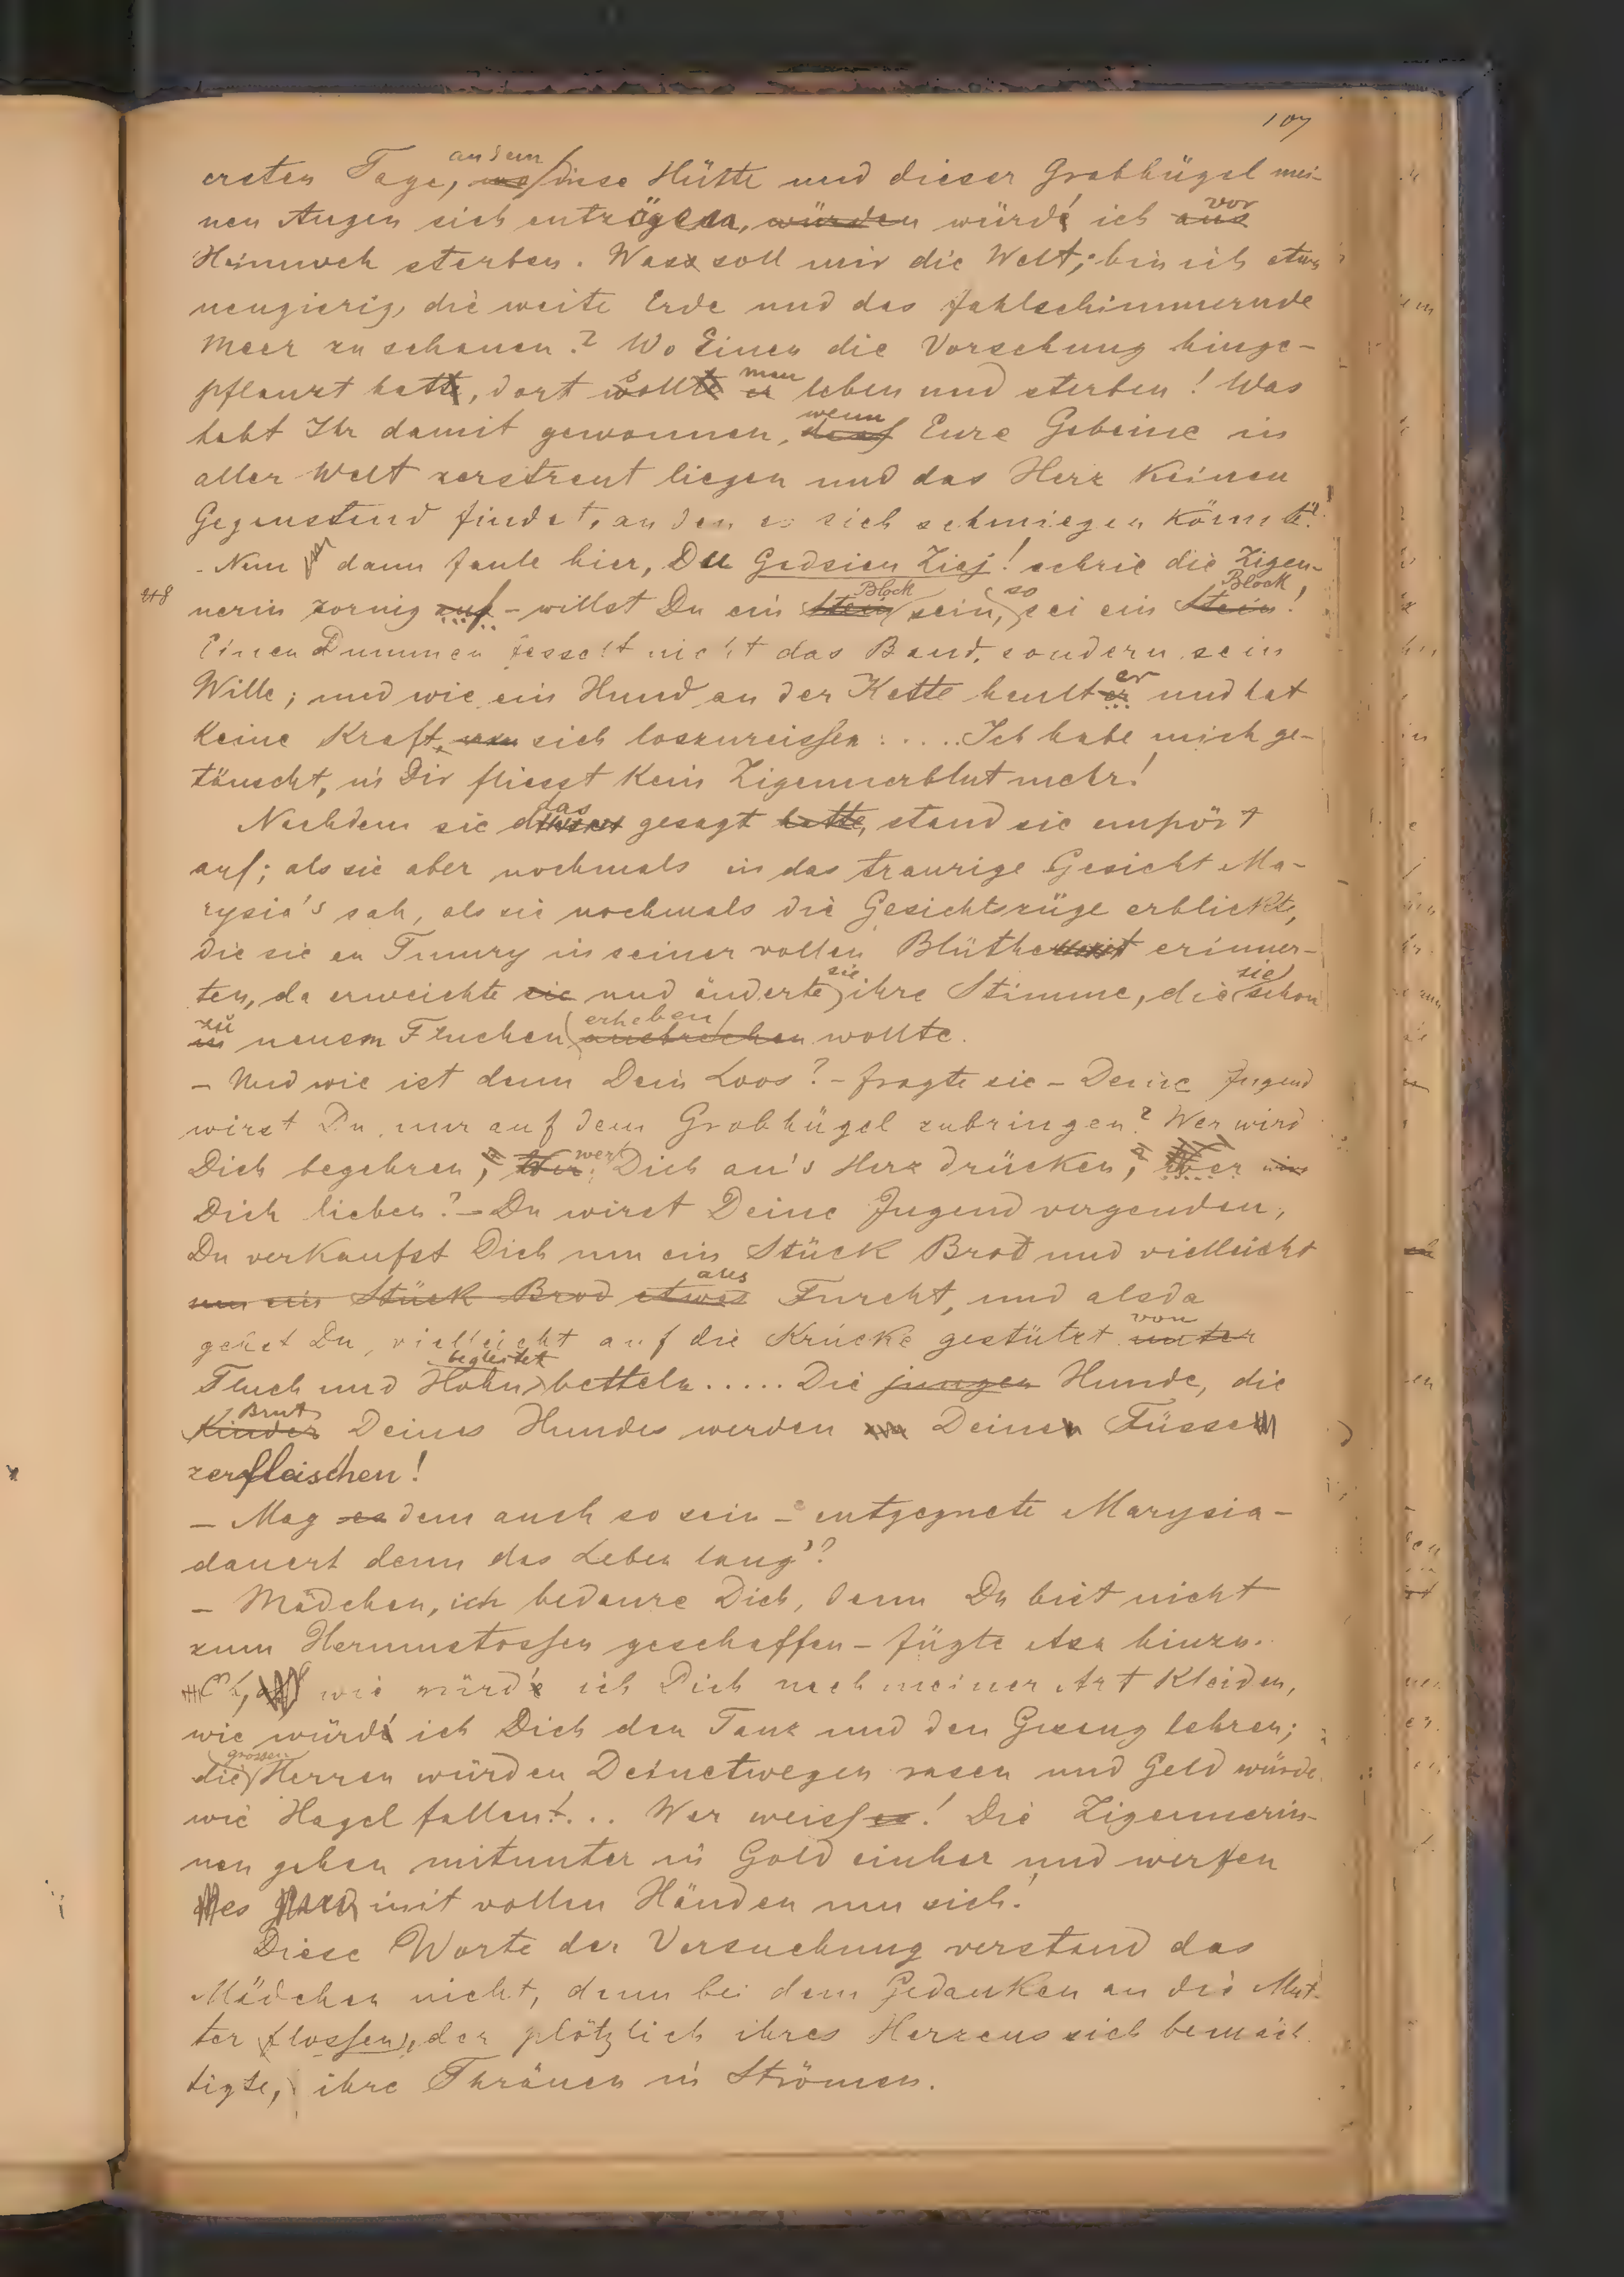 107
ersten Tage, an dem diese Hütte und dieser Grabhügel mei-
nen Augen sich entzögen, würden würd' ich vor
Heimweh sterben. Was soll mir die Welt; bin ich etwa
neugierig, die weite Erde und das fahlschimmernde
Meer zu schauen? Wo Einen die Vorsehung hinge-
pflanzt hat, dort soll man leben und sterben! Was
habt Ihr damit gewonnen, wenn Eure Gebeine in
aller Welt zerstreut liegen und das Herz keinen
Gegenstand findet, an den es sich schmiegen könnte?!
- Nun dann faule hier, Du Gadzien Ziej! schrie die Zigeu-
nerin zornig auf - willst Du ein Block sein, so sei ein Block!
Einen Dummen fesselt nicht das Band, sondern sein
Wille; und wie ein Hund an der Kette heult er und hat
keine Kraft, sich loszureissen..... Ich habe mich ge-
täuscht, in Dir fliesst kein Zigeunerblut mehr!
Nachdem sie das gesagt hatte, stand sie empört
auf; als sie aber nochmals in das traurige Gesicht Ma-
rysia's sah, als sie nochmals die Gesichtszüge erblickte,
die sie an Tumry in seiner vollen Blüthe erinner-
ten, da erweichte sie und änderte sie ihre Stimme, die sie schon
zu neuem Fluchen erheben wollte.
- Und wie ist denn Dein Loos? - fragte sie - Deine Jugend
wirst Du nur auf dem Grabhügel zubringen? Wer wird
Dich begehren, wer Dich an's Herz drücken, wer
Dich lieben? - Du wirst Deine Jugend vergeuden,
Du verkaufst Dich um ein Stück Brod und vielleicht
um ein Stück Brod etwas aus Furcht, und alsda
gehst Du, vielleicht auf die Krücke gestützt von
Fluch und Hohn begleitet betteln..... Die jungen Hunde, die
Brut Deines Hundes werden Deine Füsse
zerfleischen!
- Mag es dem auch so sein - entgegnete Marysia -
dauert denn das Leben lang'?
- Mädchen, ich bedaure Dich, denn Du bist nicht
zum Herumstossen geschaffen - fügte Aza hinzu.
Oh, wie würd' ich Dich nach meiner Art kleiden,
wie würd' ich Dich den Tanz und den Gesang lehren;
die grossen Herren würden Deinetwegen rasen und Geld würde
wie Hagel fallen!... Wer weiss es! Die Zigeunerin-
nen gehen mitunter in Gold einher und werfen
es mit vollen Händen um sich!
Diese Worte der Versuchung verstand das
Mädchen nicht, denn bei dem Gedanken an die Mut-
ter flossen, der plötzlich ihres Herzens sich bemäch
tigte, ihre Thränen in Strömen.